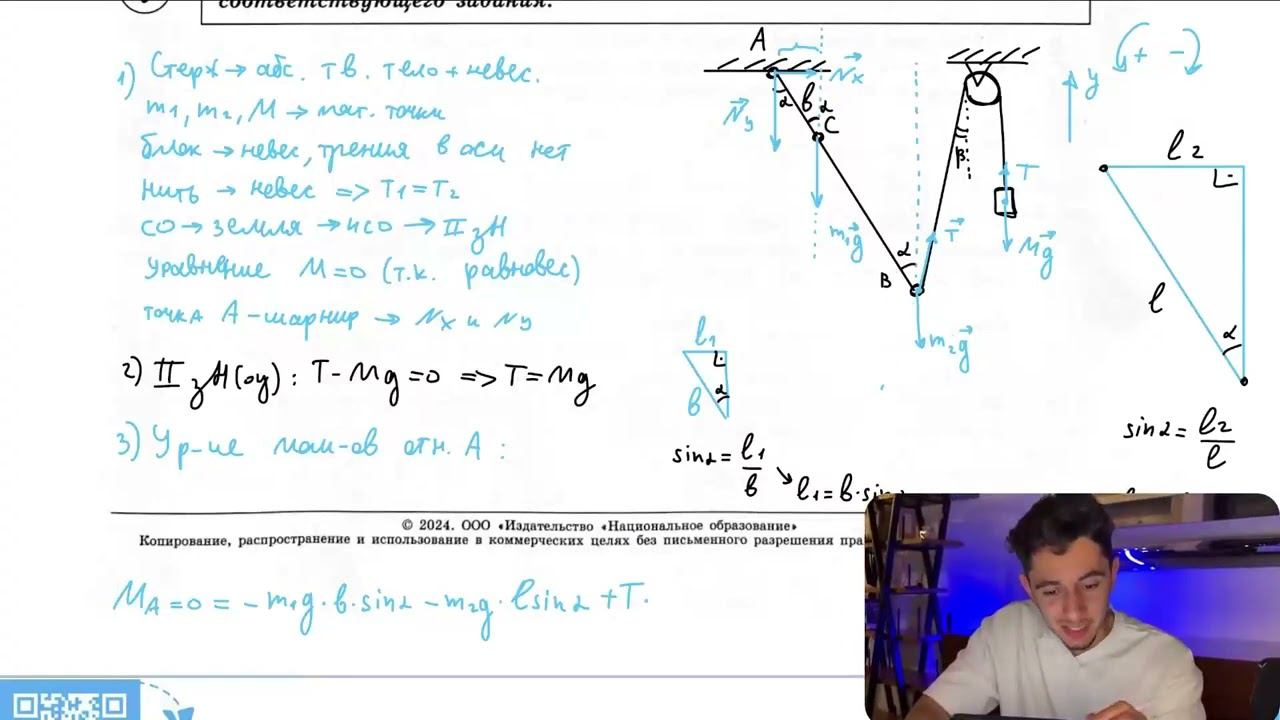 соответствующего задания.
1) Стерж → абс. тв. тело + невес.
m1, m2, M → мат. точки
блок → невес, трения в оси нет
нить → невес => T1 = T2
СО → земля → ИСО → II зН
уравнение M=0 (т.к. равновес)
точка A - шарнир → Nx и Ny
2) II зН(оу): T - Mg = 0 => T = Mg
3) Ур-ие мом-ов отн. A :
A
Nx
Ny
α
b
α
C
m1g
B
α
T
m2g
β
T
Mg
y
+ -
l2
l
α
sinα = l2/l
l1
b
α
sinα = l1/b
l1 = b·sin
© 2024. ООО «Издательство «Национальное образование»
Копирование, распространение и использование в коммерческих целях без письменного разрешения
MA=0 = -m1g·b·sinα - m2g·lsinα + T·